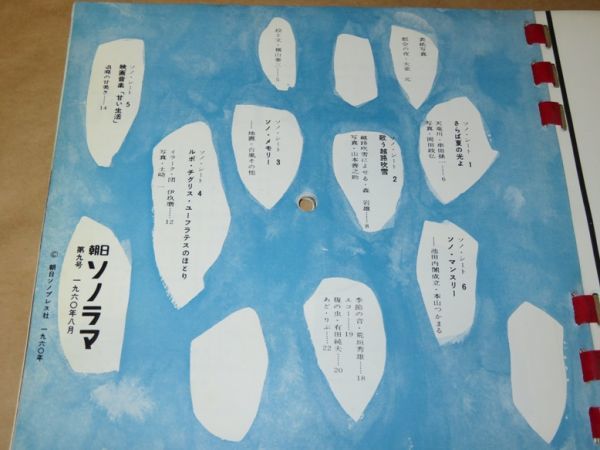 表紙写真
都会の夜・大束 元
絵と文・横山泰三……5
ソノ・シート 1
さらば夏の光よ
天竜川・串田孫一……6
写真・岡田政弘
ソノ・シート 2
歌う越路吹雪
越路吹雪によせる・森 岩雄……8
写真・山本善之助
ソノ・シート 3
ソノ・メモリー
──地震・台風その他
ソノ・シート 4
ルポ・チグリス・ユーフラテスのほとり
イラーク・団 伊玖磨……12
写真・土崎 一
ソノ・シート 5
映画音楽「甘い生活」
退廃の甘美さ……14
ソノ・シート 6
ソノ・マンスリー
──池田内閣成立・本山つかまる
季節の音・荒垣秀雄……18
エコー……19
復の虫・有田純夫……20
あど・りぶ……22
朝日ソノラマ
第九号 一九六〇年八月
© 朝日ソノプレス社 一九六〇年